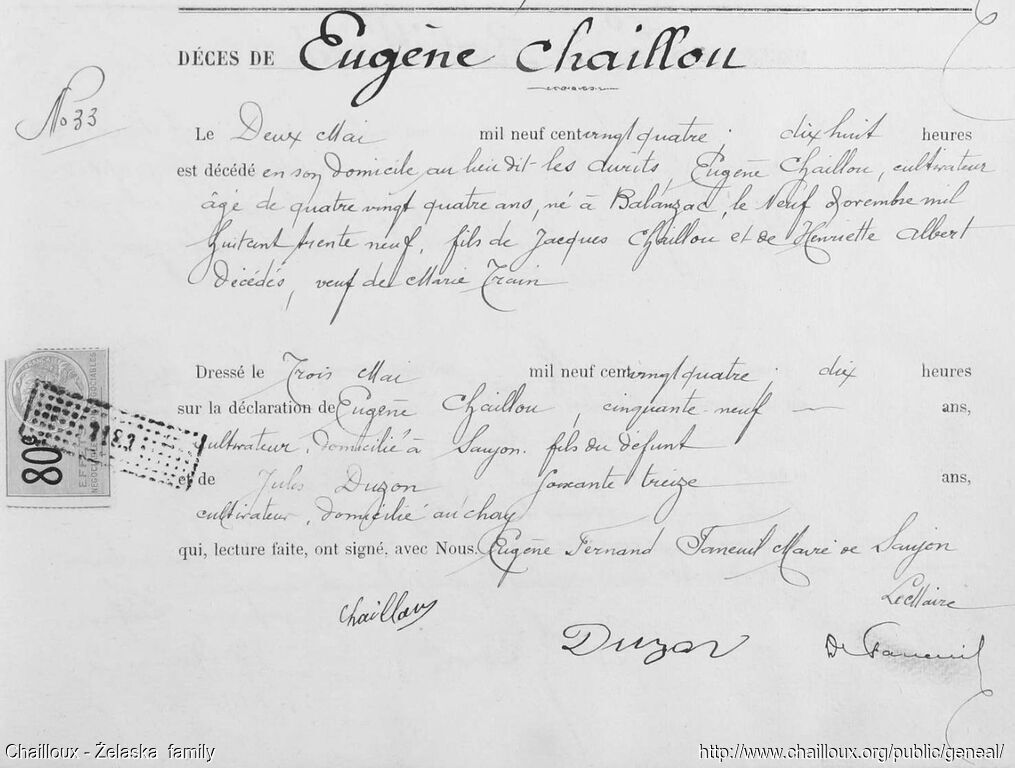 DÉCES DE Eugène Chaillou
No 33
Le Deux Mai mil neuf cent vingt quatre. dix huit heures
est décédé en son domicile au lieu dit les durits, Eugène Chaillou, cultivateur
âgé de quatre vingt quatre ans, né à Balanzac, le Neuf Novembre mil
huit cent trente neuf, fils de Jacques Chaillou et de Henriette Albert
Décédés, veuf de Marie Train
Dressé le Trois Mai mil neuf cent vingt quatre. dix heures
sur la déclaration de Eugène Chaillou, cinquante-neuf — ans,
cultivateur, domicilié à Saujon. fils du defunt
et de Jules Duzon Soixante treize ans,
cultivateur, domicilié au chay
qui, lecture faite, ont signé, avec Nous. Eugène Fernand Faneuil Maire de Saujon
Le Maire
Chaillou
Duzon
Dr Faneuil
80c
EFFETS
NEGOCIABLES
Chailloux - Żelaska family
http://www.chailloux.org/public/geneal/